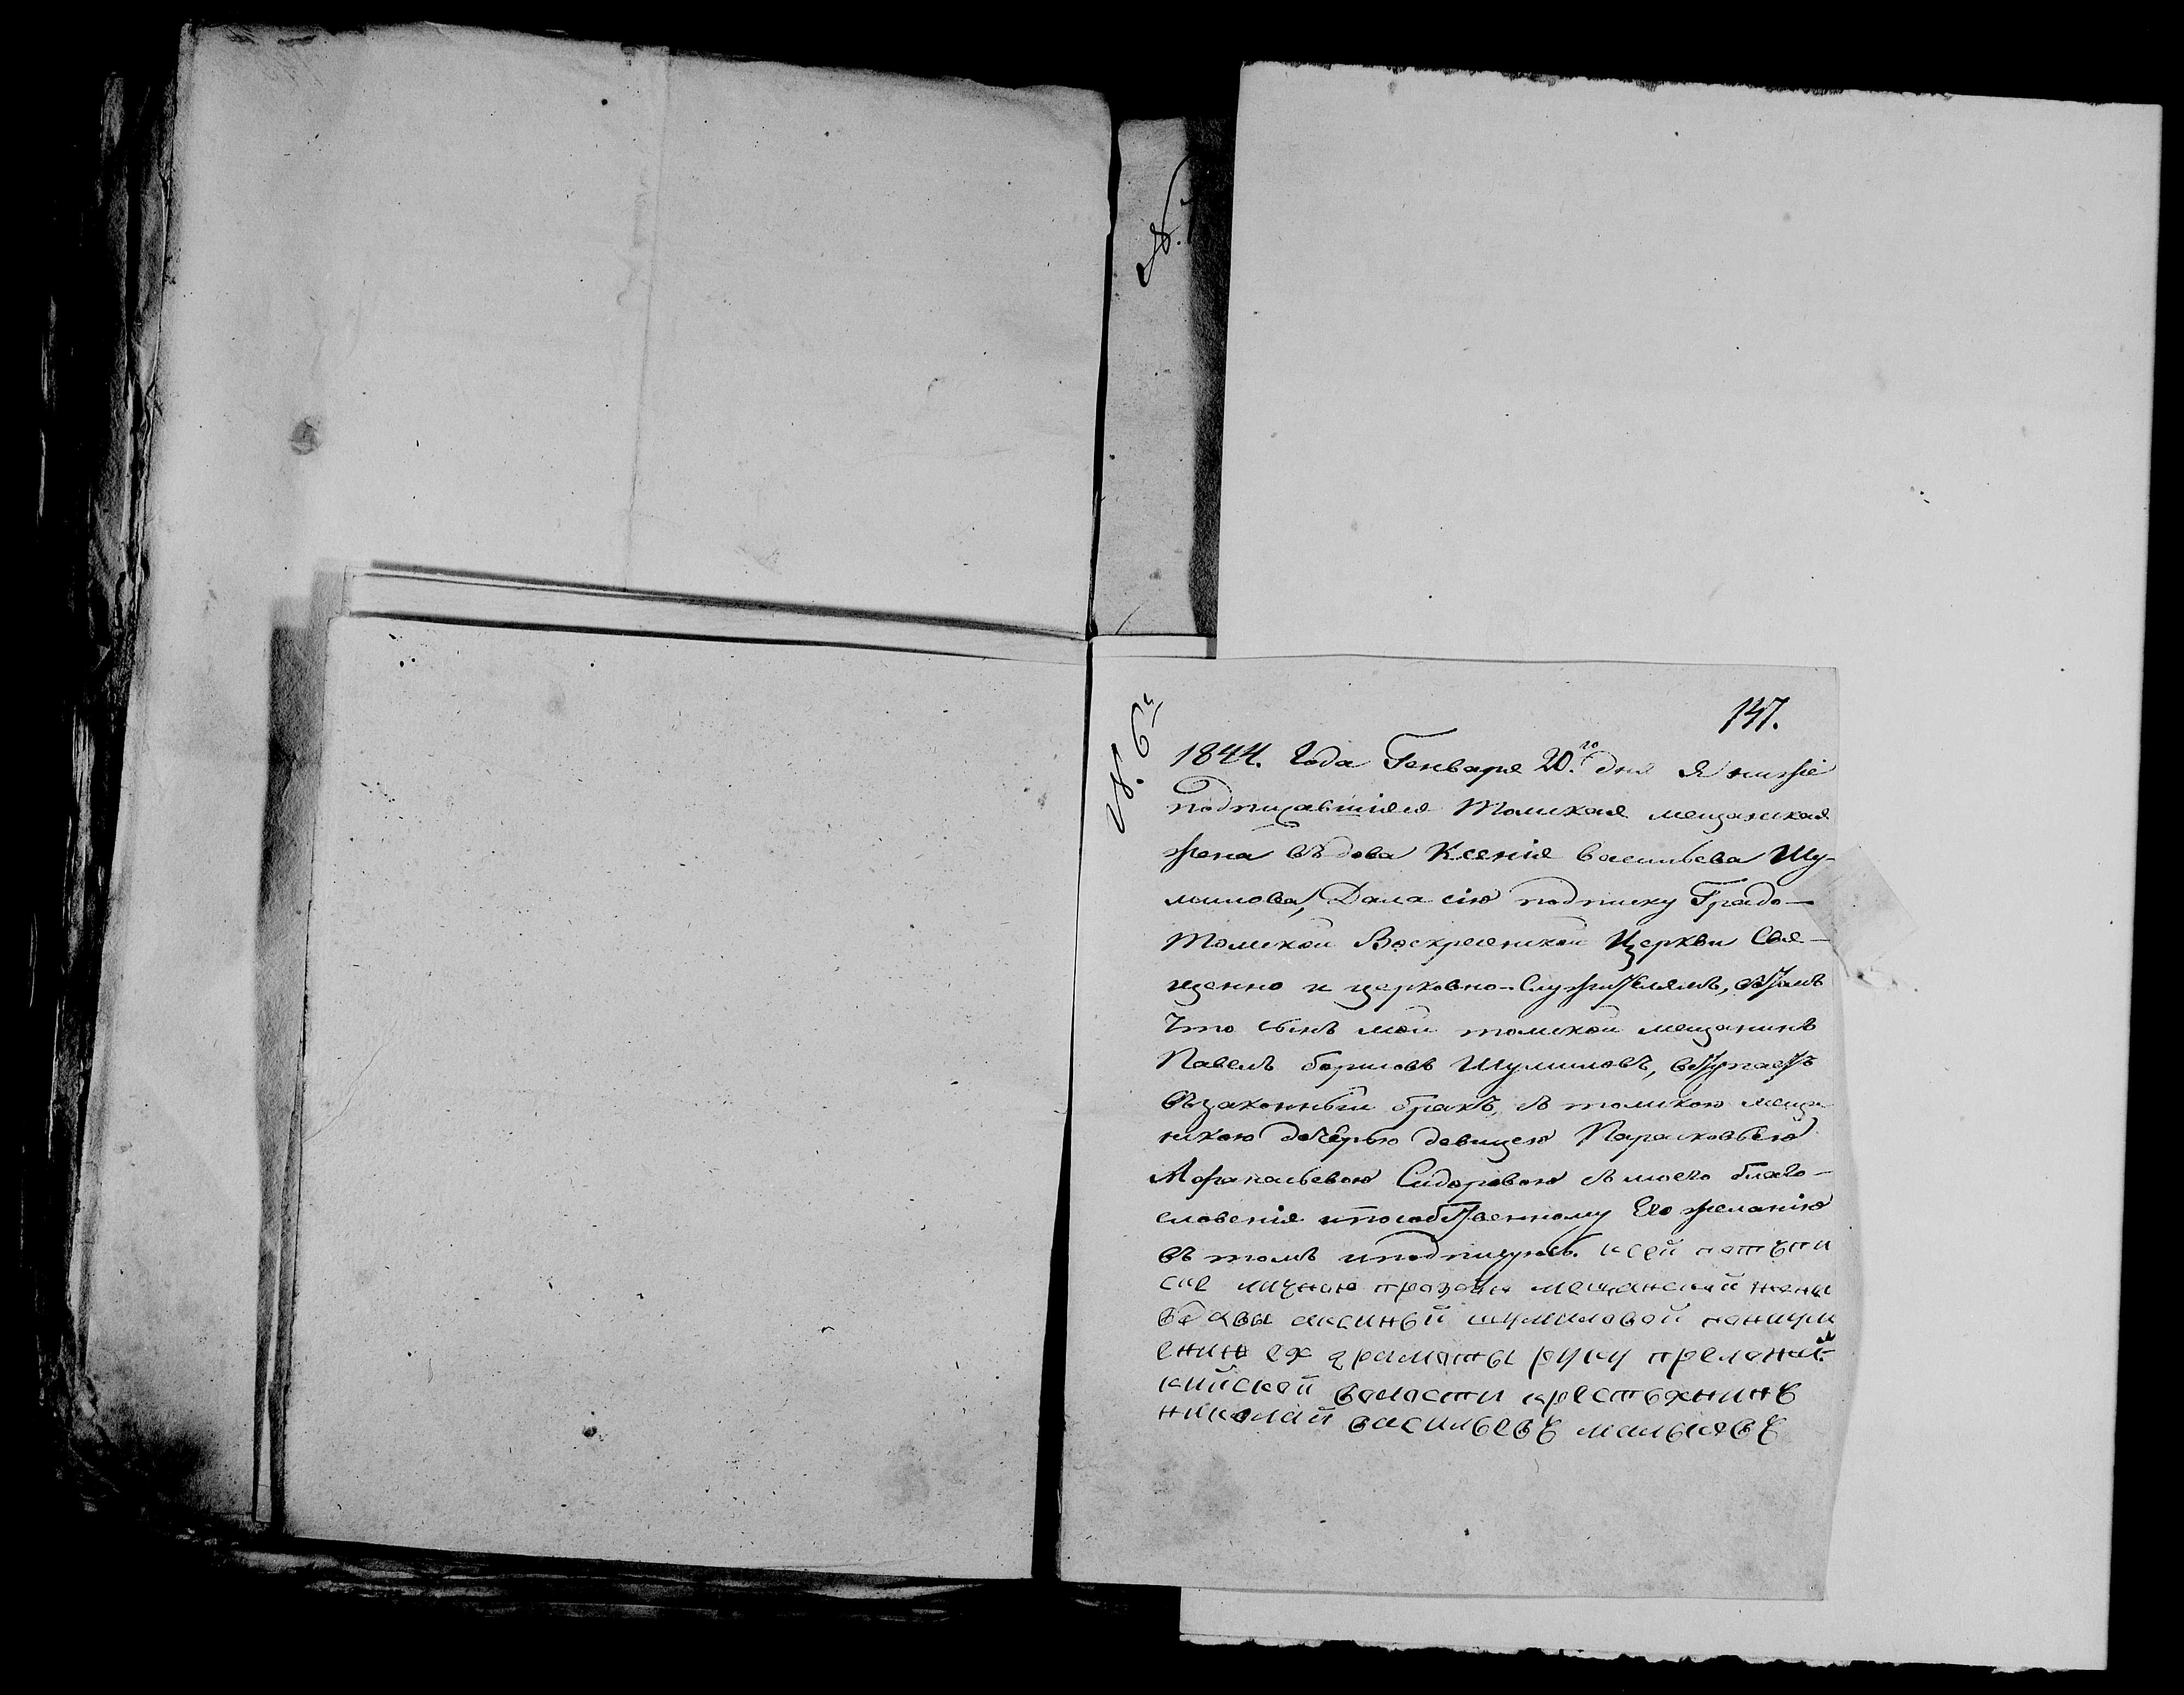 147.
№ 6й
1844. Года Генваря 20.го дня я ниже
подписавшіяся Томская мещанская
жена въдова Ксенія Васильева Шу-
милова, Дала сію подписку Градо-
Томской Воскресенской Церкви Свя-
щенно и церковно-Служителямъ, втомъ
Что сынъ мой томской мещанинъ
Павелъ борисовъ Шумиловъ, вступаетъ
въ законный бракъ, съ томскою меща
нскою дочерью девицею Парасковьею
Афанасьевою Сидоровою съ моего благо-
словенія ипособственному Его желанію
въ томъ иподписуюсь. ксей
личною прозбы мещанской жены
въдавы аксиньи шумиловой
ея грамоты руку
волости крестьянинъ
николай васильевъ